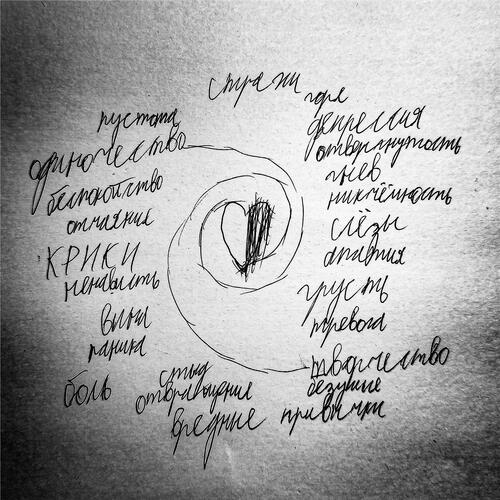 страхи
горе
пустота
депрессия
одиночество
отвергнутость
гнев
беспокойство
никчёмность
отчаяние
слёзы
КРИКИ
апатия
ненависть
грусть
вина
тревога
паника
творчество
стыд
безумие
боль
отвращение
вредные привычки